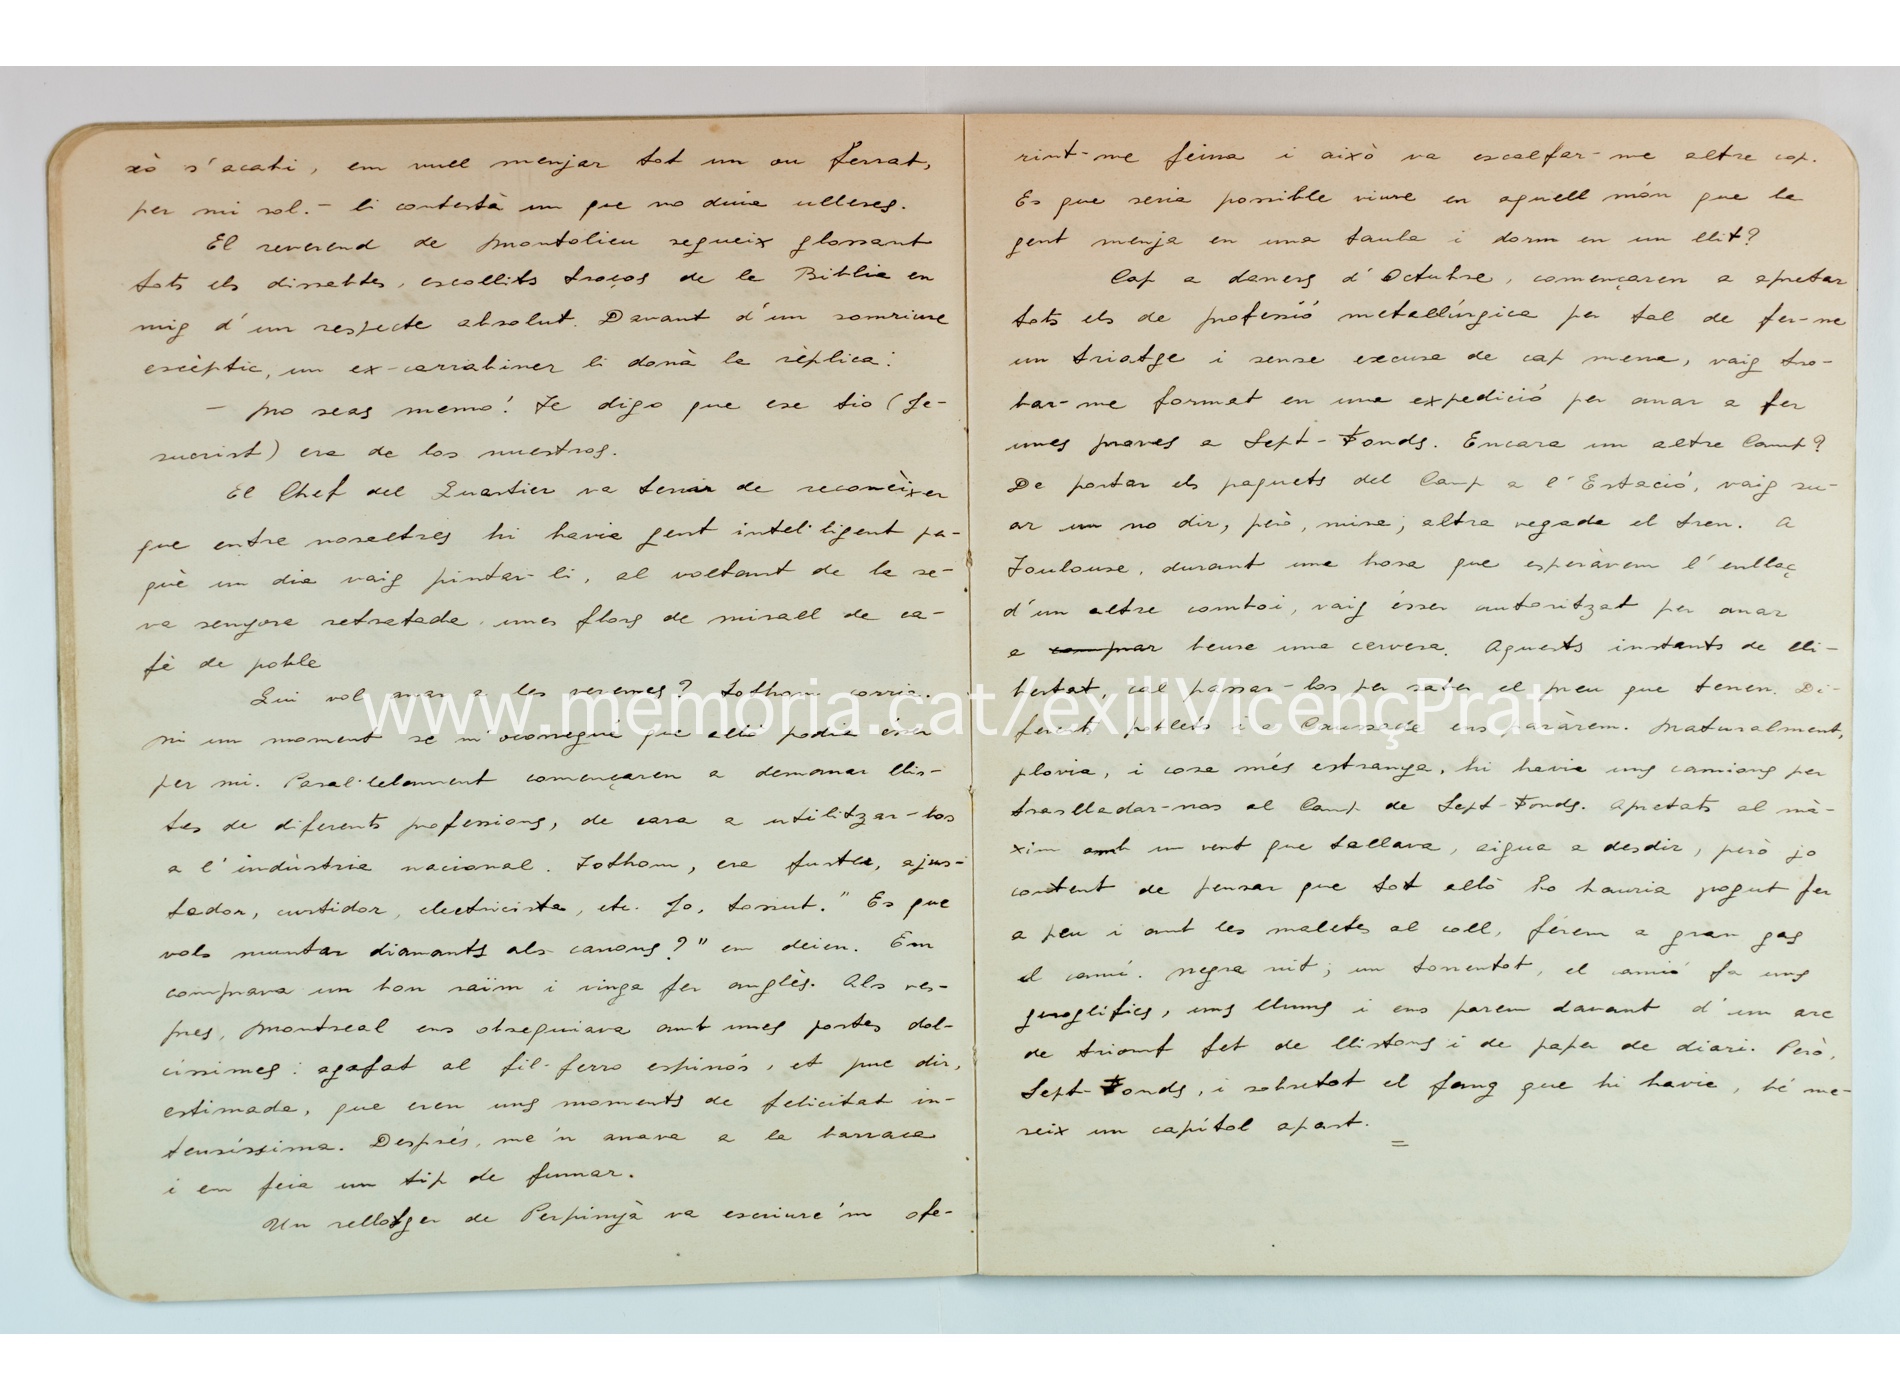 xò s'acabi, em vull menjar tot un ou ferrat,
per mi sol.- li contestà un que no duia ulleres.
El reverend de Montolieu segueix glossant
tots els dissabtes, escollits troços de la Biblia en
mig d'un respecte absolut. Davant d'un somriure
escèptic, un ex-carrabiner li donà la rèplica:
- No seas memo! Te digo que ese tio (Je-
sucrist) era de los nuestros.
El Chef del Quartier va tenir de reconèixer
que entre nosaltres hi havia gent intel·ligent per-
què un dia vaig pintar-li, al voltant de la se-
va senyora retratada unes flors de mirall de ca-
fè de poble
Qui vol anar a les veremes? Tothom corria.
Ni un moment se m'ocorregué que allò podia ésser
per mi. Paral·lelament començaren a demanar llis-
tes de diferents professions, de cara a utilitzar-los
a l'indústria nacional. Tothom, era fuster, ajus-
tador, curtidor, electricista, etc. Jo, tossut. "Es que
vols muntar diamants als canons?" em deien. Em
comprava un bon raïm i vinga fer anglès. Als ves-
pres, Montreal ens obsequiava amb unes postes dol-
císsimes: agafat al fil-ferro espinós, et puc dir,
estimada, que eren uns moments de felicitat in-
tensíssima. Després, me'n anava a la barraca
i em feia un tip de fumar.
Un rellotger de Perpinyà va escriure'm ofe-
rint-me feina i això va escalfar-me altre cop.
Es que seria possible viure en aquell món que la
gent menja en una taula i dorm en un llit?
Cap a darrers d'Octubre, començaren a apretar
tots els de professió metallúrgica per tal de fer-ne
un triatge i sense excusa de cap mena, vaig tro-
bar-me format en una expedició per anar a fer
unes proves a Sept-Fonds. Encara un altre Camp?
De portar els paquets del Camp a l'Estació, vaig su-
ar un no dir, però, mira; altra vegada el tren. A
Toulouse, durant una hora que esperàvem l'enllaç
d'un altre comboi, vaig ésser autoritzat per anar
a comprar beure una cervesa. Aquests instants de lli-
bertat, cal passar-los per saber el preu que tenen. Di-
ferents poblets i a Caussade ens paràrem. Naturalment,
plovia, i cosa més estranya, hi havia uns camions per
traslladar-nos al Camp de Sept-Fonds. Apretats al mà-
xim amb un vent que tallava, aigua a desdir, però jo
content de pensar que tot allò ho hauria pogut fer
a peu i amb les maletes al coll, férem a gran gas
el camí. Negra nit; un torrentot, el camió fa uns
geroglífics, uns llums i ens parem davant d'un arc
de triomf fet de llistons i de paper de diari. Però,
Sept-Fonds, i sobretot el fang que hi havia, bé me-
reix un capítol apart.
www.memoria.cat/exiliVicençPrat